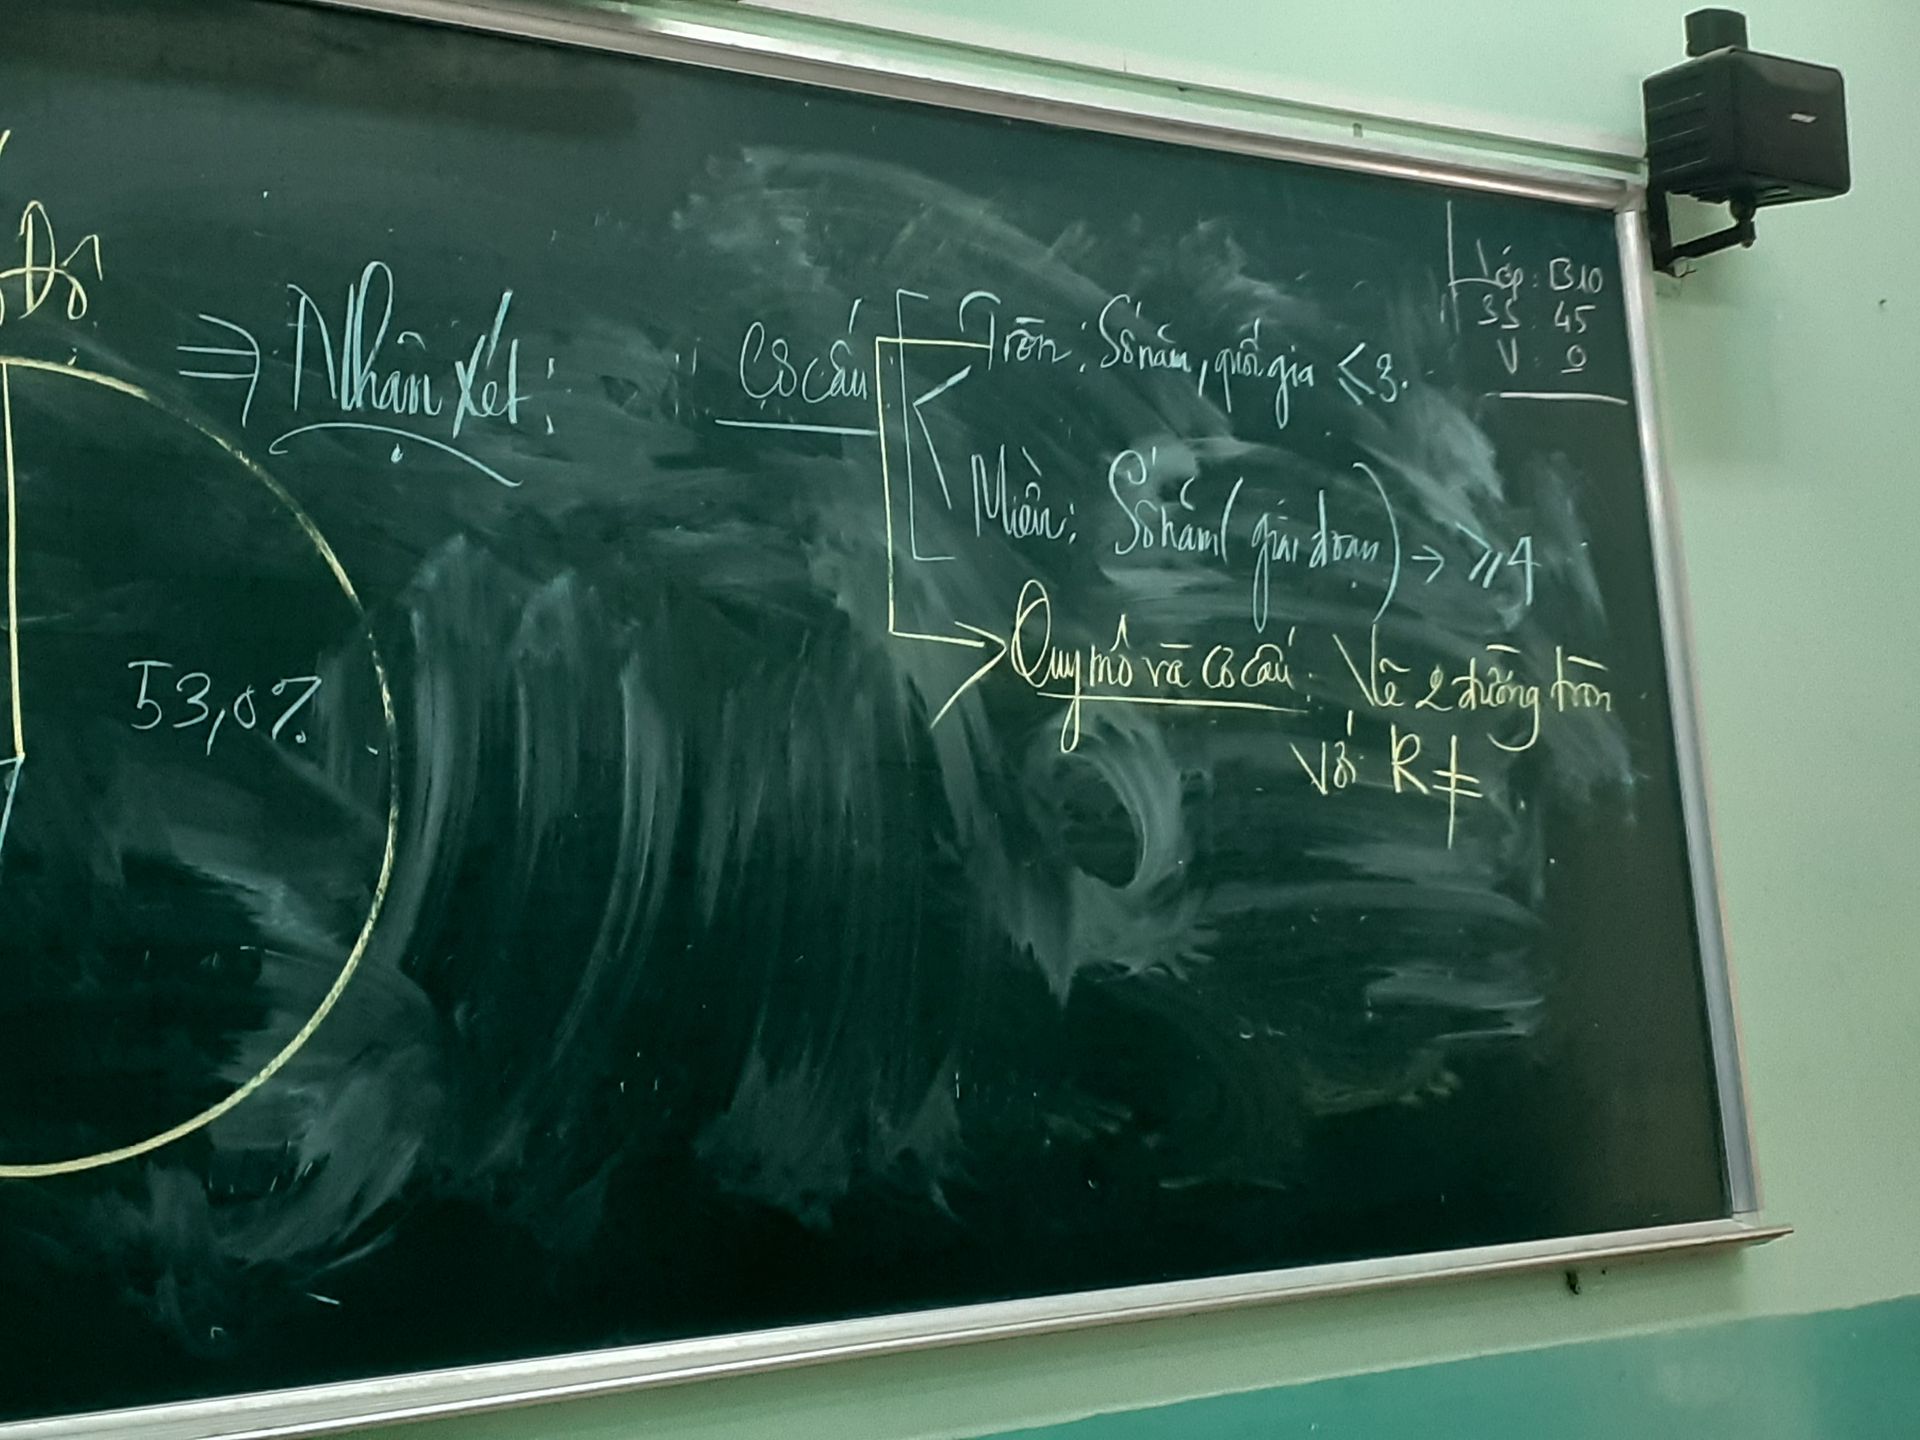 Độ
⇒ Nhận xét:
53,0%
Cơ cấu
Tròn: Số năm, quốc gia ≤ 3.
Miền: Số năm (giai đoạn) → ≥ 4
Quy mô và cơ cấu: Vẽ 2 đường tròn
với R ≠
Lớp: B10
SS: 45
V: 0